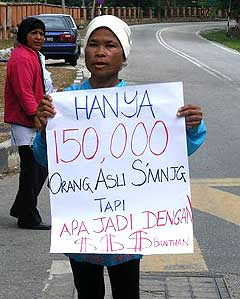 HANYA
150,000
ORANG ASLI S'MNJG
TAPI
APA JADI DENGAN
$ $ $ BANTUAN